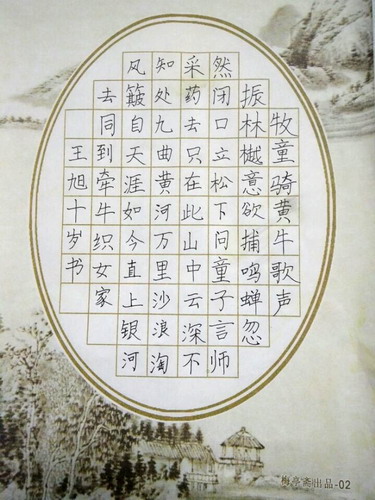 牧童骑黄牛歌声
振林樾意欲捕鸣蝉忽
然闭口立松下问童子言师
采药去只在此山中云深不
知处九曲黄河万里沙浪淘
风簸自天涯如今直上银河
去同到牵牛织女家
王旭十岁书
梅亭斋出品-02